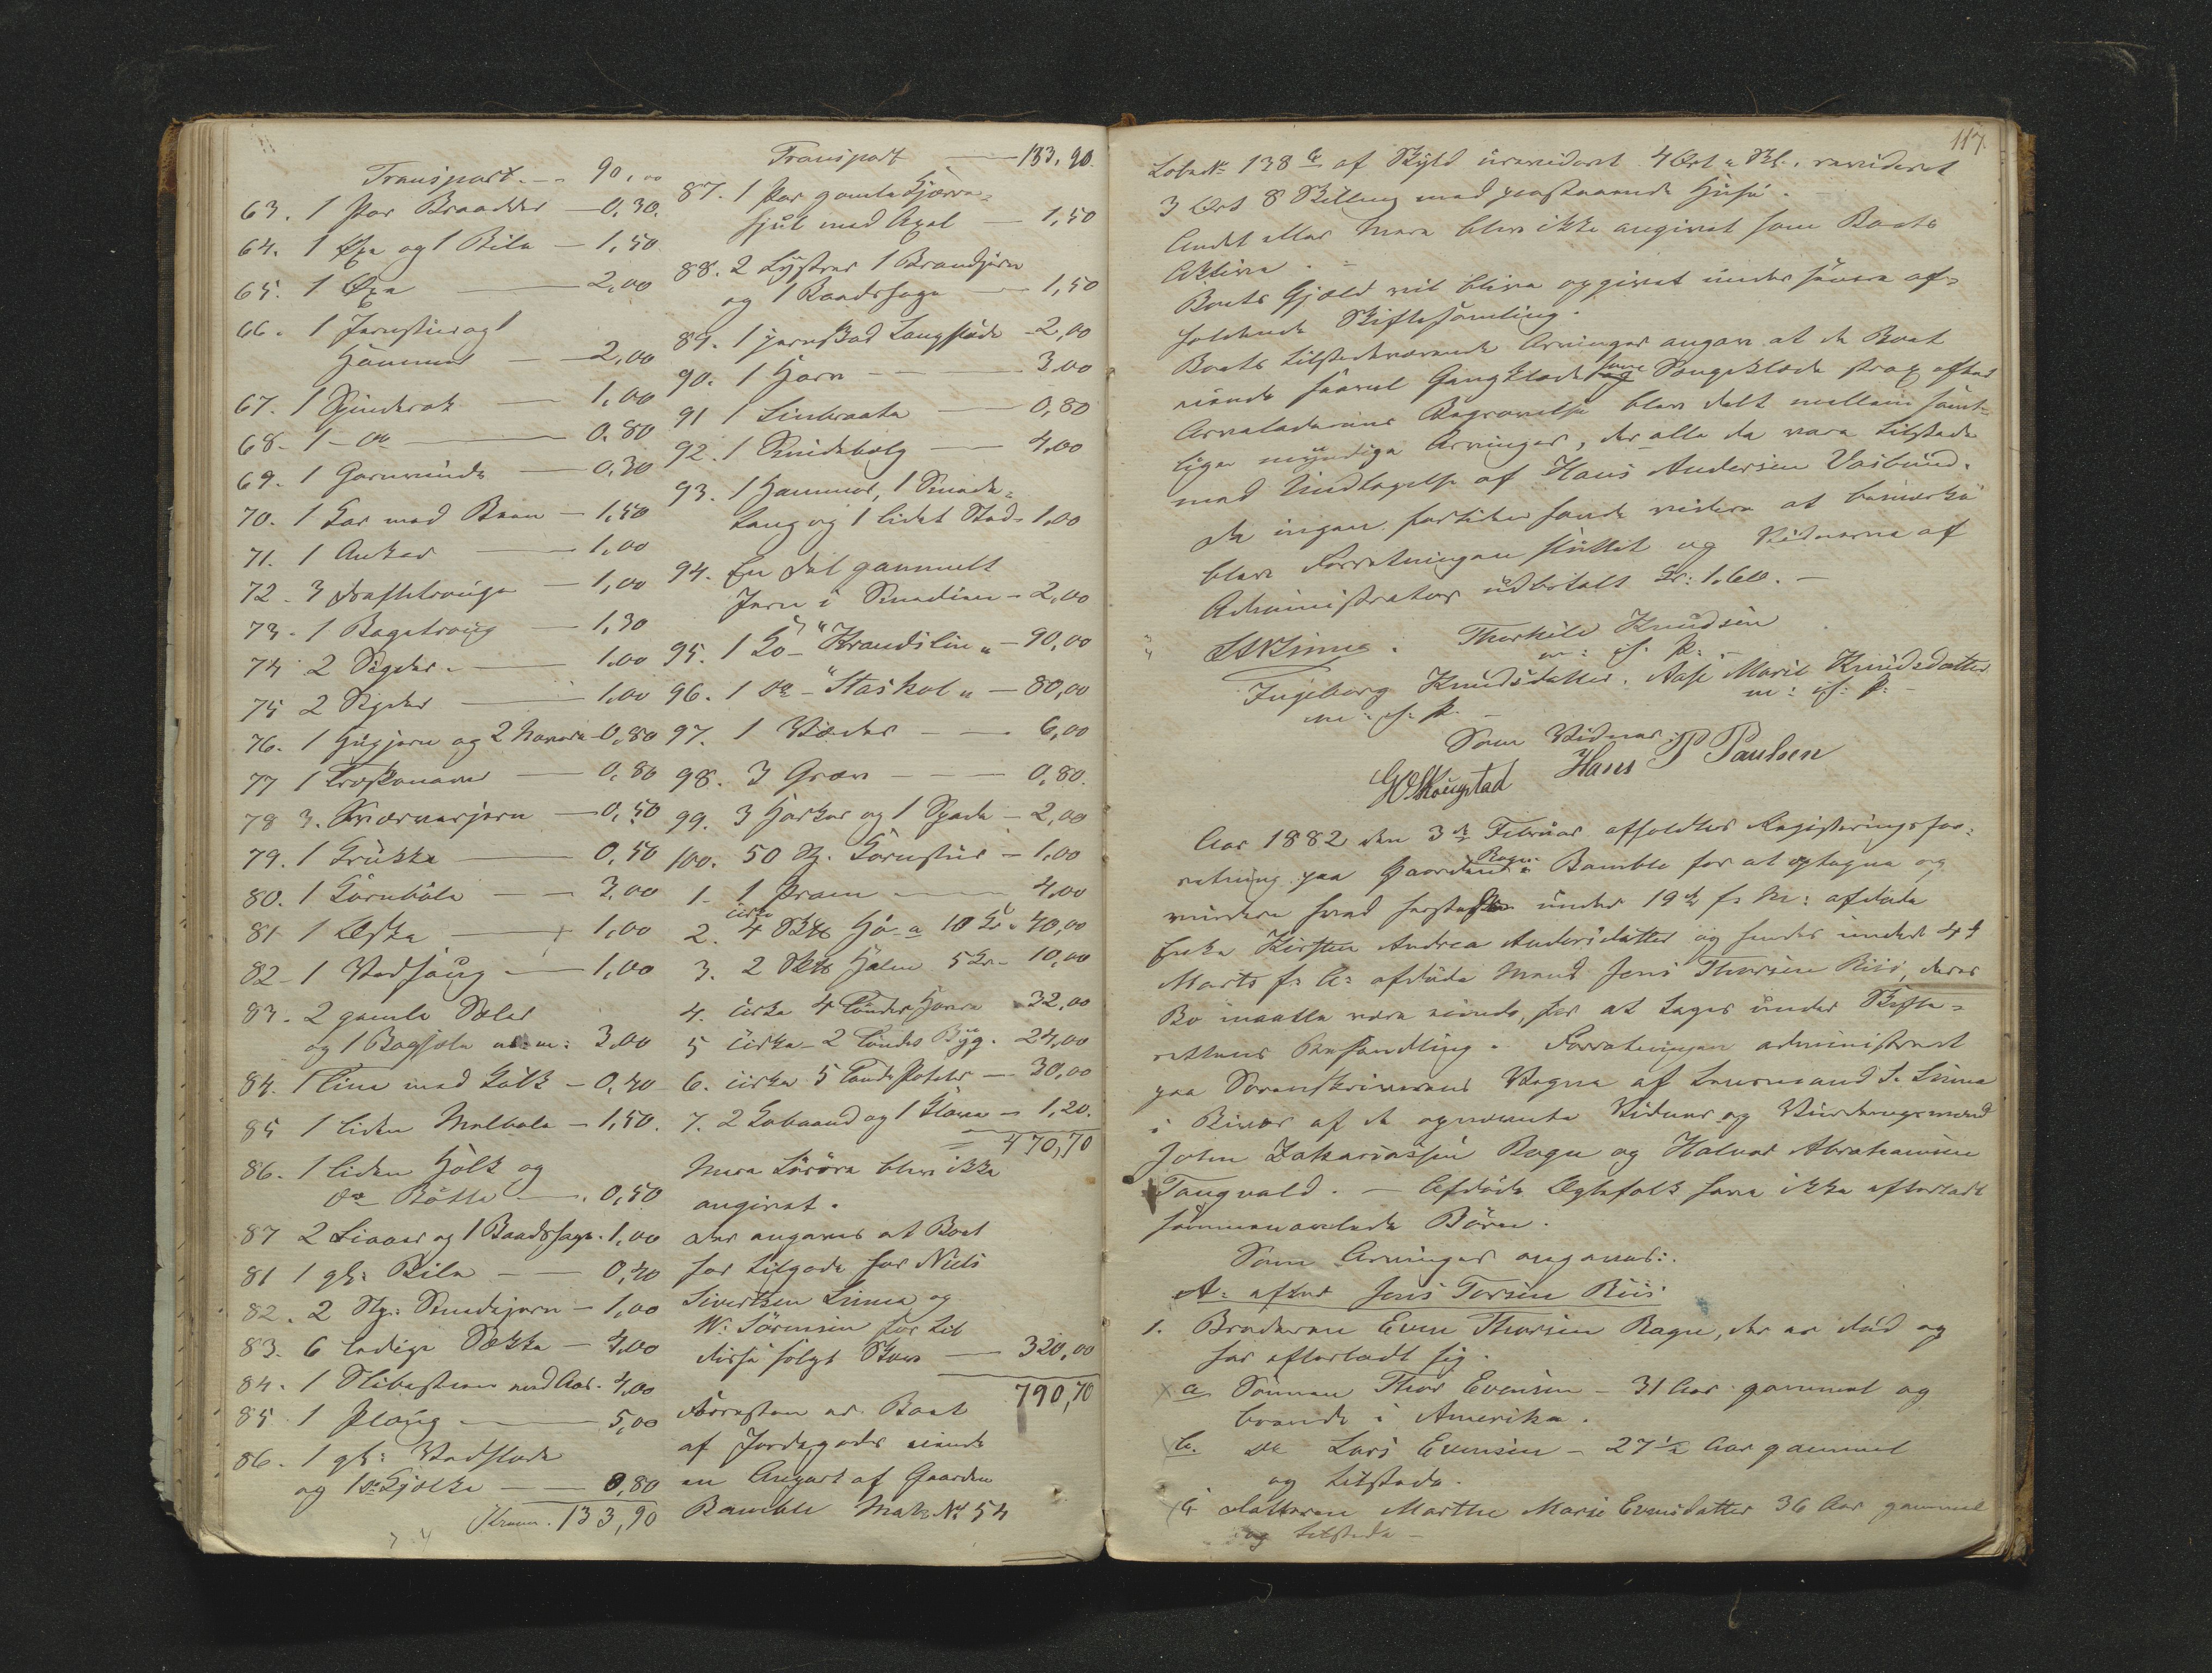 Transport. — 90,00
63. 1 Par Braadder — 0,30.
64. 1 Øxe og 1 Bila — 1,50
65. 1 Øxe — 2,00
66. 1 Jernstør og 1
Hammer — 2,00
67. 1 Spinderok — 1,00
68. 1 - do — 0.80
69. 1 Garnvinde — 0,30
70. 1 Kar med Been — 1,50
71. 1 Anker — 1,00
72. 3 — 1,00
73. 1 Bagetroug — 1,30
74 2 Sigder — 1.00
75 2 Sigder — 1,00
76. 1 Hugjern og 2 Navare 0,80
77 1 — 0,80
78 3. — 0,50
79. 1 Krukke — 0,50
80. 1 Kornböle — 3,00
81 1 Æske — 1,00
82 1 Vedsaug — 1,00
83. 2 gamle Seler
og 1 Bagsele m: m: 3,00
84. 1 Tina med Laak — 0,40
85 1 liden Melbøle — 1,50.
86. 1 liden Holk og
do Bøtte — 0,50
87 2 Liaaer og 1 Baadshage. 1,00
81 1 gl: Bila — 0,40
82. 2 St: Smedejern — 1,00
83. 6 ledige Sekke — 4,00
84. 1 Slibesteen med Aas. 4,00
85 1 Ploug — 5,00
86. 1 gl: Vedslæde
og 1 do Kjelke — 0,80
Kroner. 133,90
Transport — 133,90.
87. 1 Par gamle Kjerre-
hjul med Axel — 1,50
88. 2 Lystrer 1 Brandjern
og 1 Baadshage — 1,50
89. 1 jernskod Langslæde — 2,00
90. 1 Harv — 3.00
91 1 Linbraate — 0,80
92. 1 Smidebelg — 4,00
93. 1 Hammer, 1 Smede-
tang og 1 lidet Sted — 1,00
94. En Del gammelt
Jern i Smedien — 2,00
95. 1 Ko - "Krandslin" — 90,00
96. 1 do - "Staskol" — 80,00
97. 1 Væder — 6,00
98. 3 Grev — 0,80.
99. 3 Hakker og 1 Spade — 2,00
100. 50 St. Kornstør — 1,00
1. 1 Pram — 4,00
2. cirka 4 Sk℔ Hö a 10 Kr. 40,00
3. 2 Sk℔ Halm 5 Kr. 10,00
4. cirka 4 Tönder Havre 32,00
5 cirka 2 Tönder Byg. 24,00
6. cirka 5 Tönder Poteter — 30,00
7. 2 Kobaand og 1 Klave — 1,20.
470,70
Mere Løsøre blev ikke
angivet.
Der angaves at Boet
har tilgode hos Niels
Sivertsen Linna og
N. Sörensen for til
disse solgt Skov — 320,00
790,70
Forresten er Boet
af Jordegods eiende
en Anpart af Gaarden
Bamble Matr. No 54
117.
Løbe No 138 b af Skyld urevideret 4 Ort a Sk., revideret
3 Ort 8 Skilling med paastaaende Huse.
Andet eller Mere blev ikke angivet som Boets
Aktiva.
Boets Gjæld vil blive opgivet under senere af-
holdende Skiftesamling.
Boets tilstedeværende Arvinger angav at de Boet
eiende saavel Gangklæder som Sengeklæde strax efter
Arveladerens Begravelse blev delt mellem samt-
lige myndige Arvinger, der alle da vare tilstede
med Undtagelse af Hans Andersen Vaibund.
Da ingen fortiden havde videre at bemærke
blev Forretningen sluttet og Vidnerne af
Administrator udbetalt Kr: 1.60.
S. N. Linna. Therkile Knudsen
m: p. P.
Ingeborg Knudsdatter. Aase Marie Knudsdatter
m: p. P. m: p: P.
Som Vidner:
Hans P Paulsen
Aar 1882 den 3de Februar afholdtes Registeringsfor-
retning paa Gaarden Rogn i Bamble for at optegne og
vurdere hvad under 19de f: M: afdöde
Enke Kirsten Andrea Andersdatter og hendes under 4de
Marts f: A: afdöde Mand Jens Thorsen Riis, deres
Bo maatte være eiende, for at tages under Skifte-
rettens Behandling. Forretningen administreret
paa Sorenskriverens Vegne af Lensmand S. Linna
i Bivær af de opnævnte Vidner og Vurderingsmænd
John Zakariassen Rogn og Halvor Abrahamsen
Tangvald. — Afdøde Ægtefolk have ikke efterladt
sammenavlede Børn.
Som Arvinger angaves:
A: efter Jens Torsen Riis
1. Broderen Even Thorsen Rogn, der er död og
har efterladt sig.
a. Sönnen Thor Evensen — 31 Aar gammel og
boende i Amerika.
b. do Lars Evensen — 27 1/2 Aar gammel
og tilstede.
c Datteren Marthe Marie Evensdatter 36 Aar gammel
og tilstede —